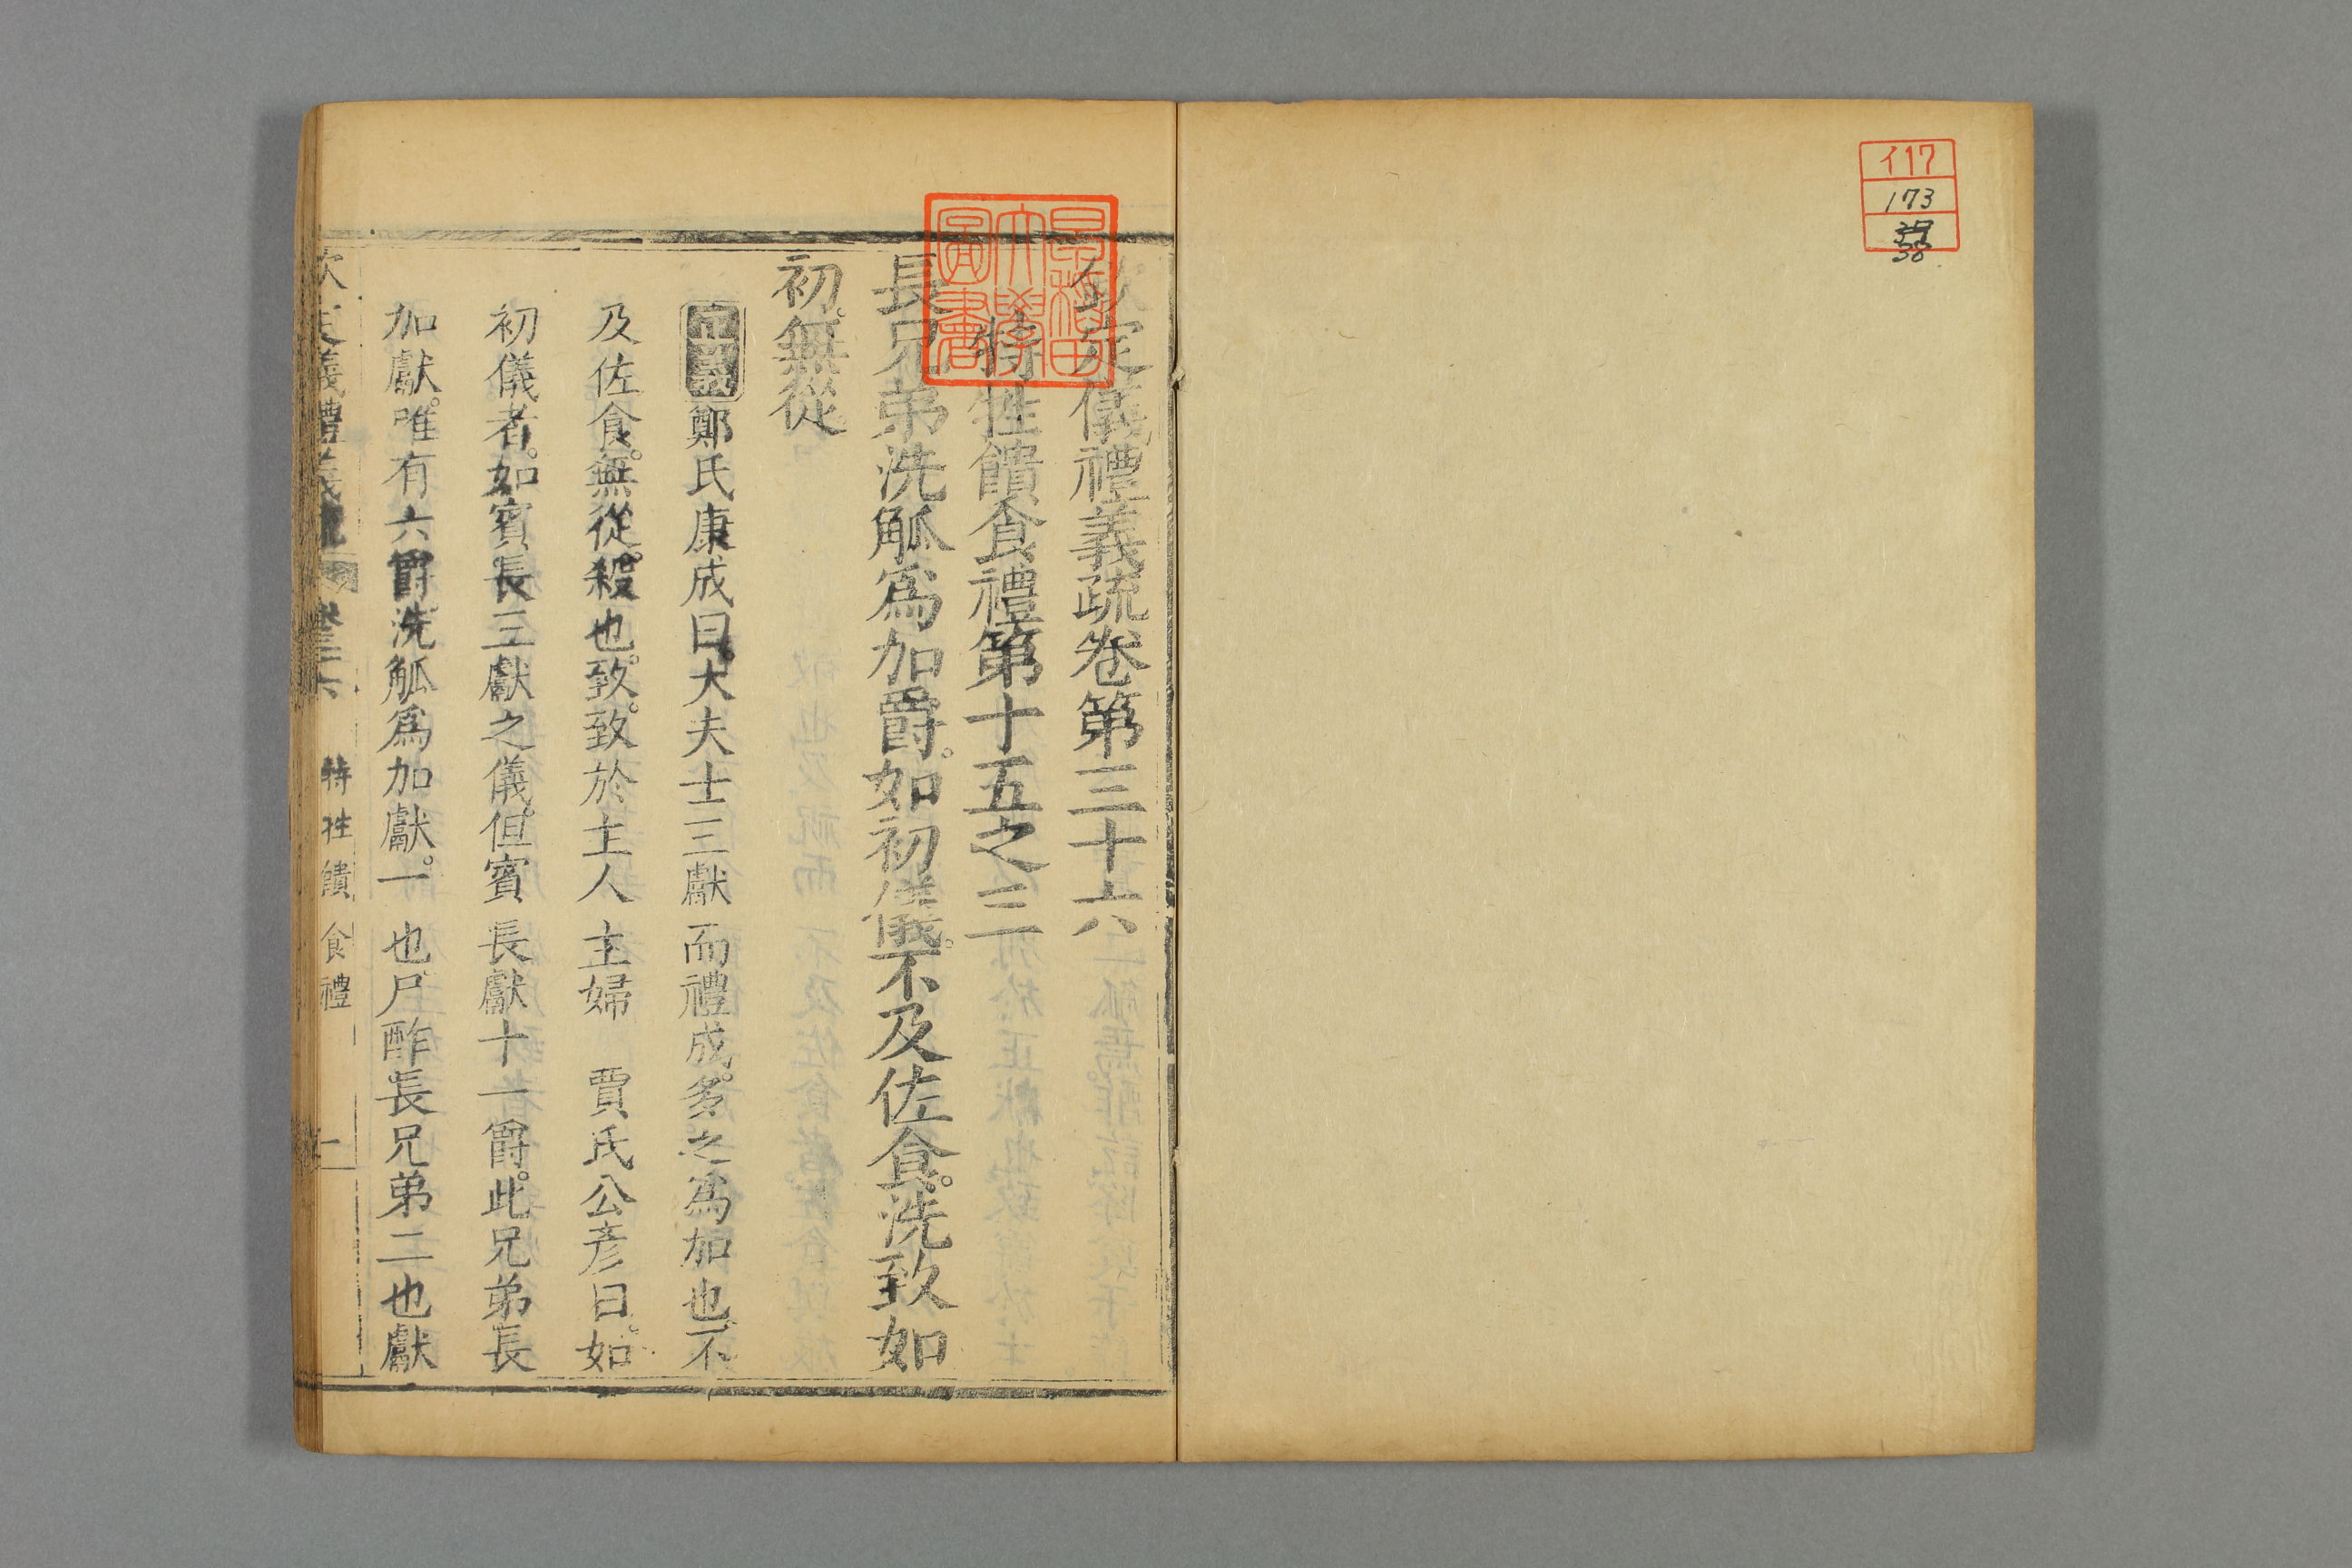 イ17
173
38
欽定儀禮義疏卷第三十六
特牲饋食禮第十五之二
長兄弟洗觚爲加爵。如初儀。不及佐食。洗致如
初。無從
鄭氏康成曰。大夫士三獻而禮成。多之爲加也。不
及佐食。無從。殺也。致。致於主人主婦 賈氏公彦曰。如
初儀者。如賓長三獻之儀。但賓長獻十一爵。此兄弟長
加獻。唯有六爵洗觚爲加獻。一也尸酢長兄弟二也獻
欽定儀禮義疏 卷三十六 特牲饋食禮 一
早稻田大學圖書